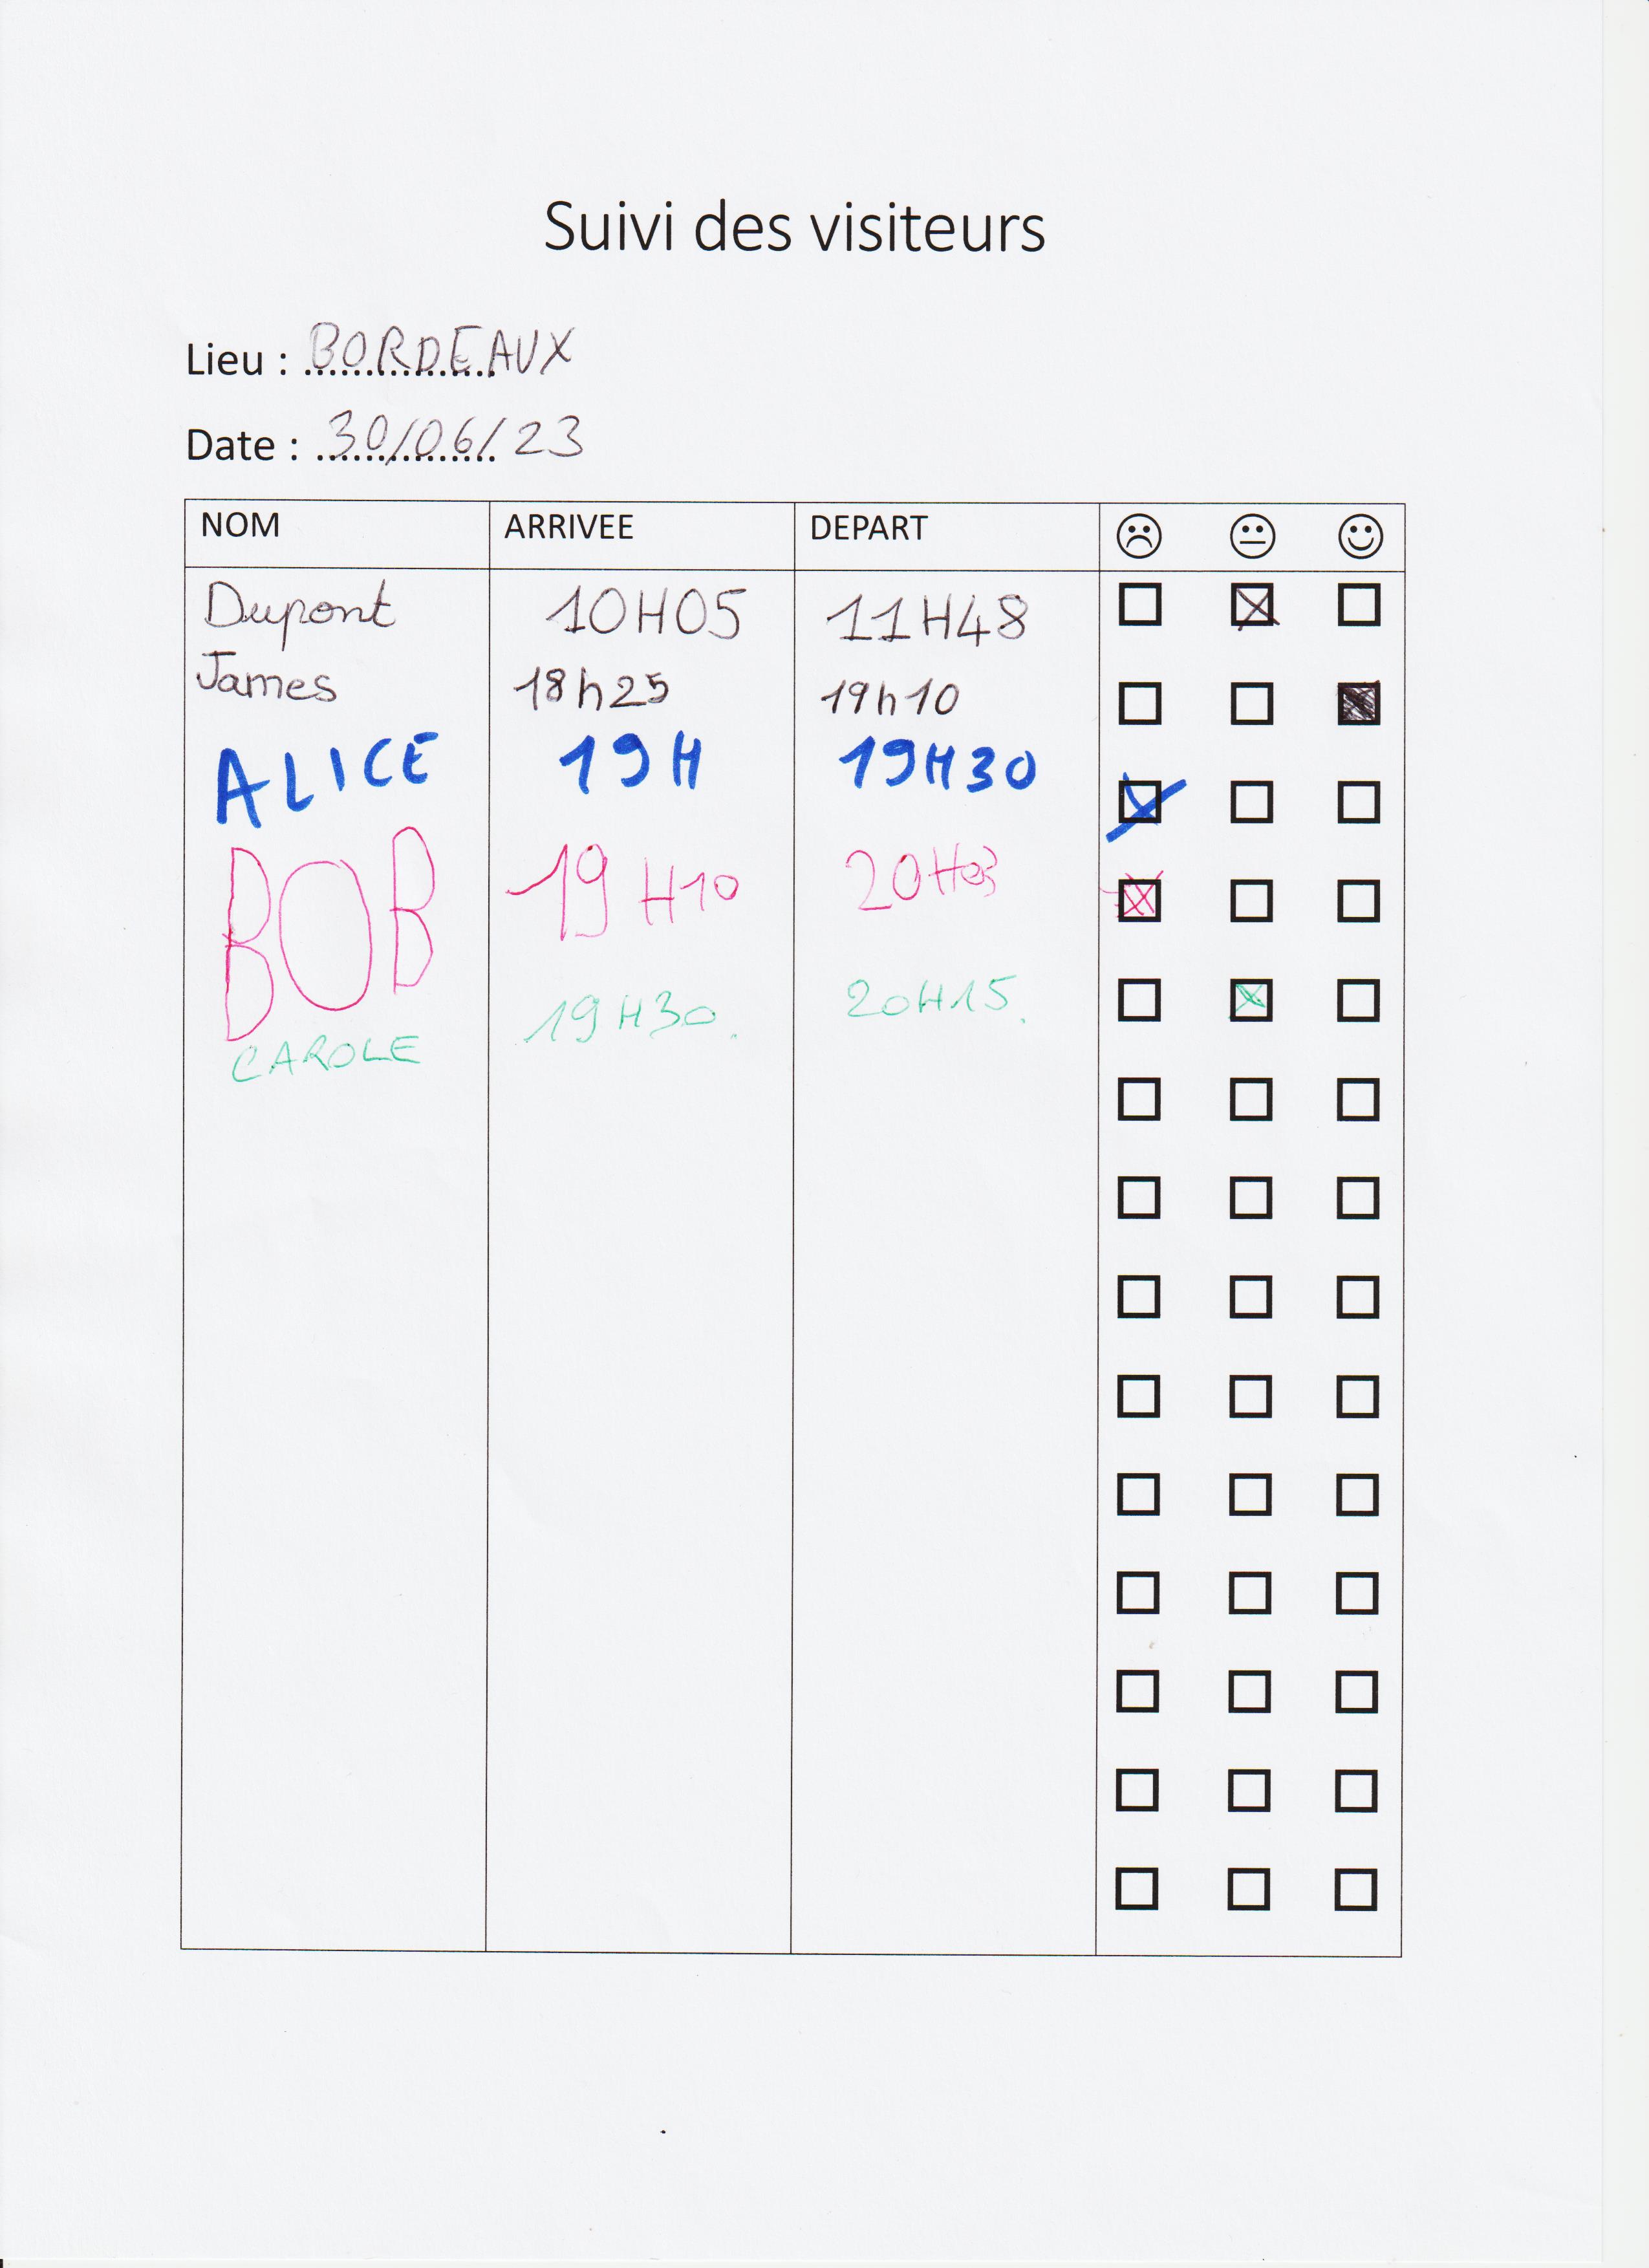 Suivi des visiteurs
Lieu : BORDEAUX
Date : 30/06/23
NOM ARRIVEE DEPART
Dupont 10H05 11H48
James 18h25 19h10
ALICE 19H 19H30
BOB 19H10 20H03
CAROLE 19H30. 20H15.